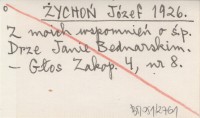 ŻYCHOŃ Józef 1926.
Z moich wspomnień o śp.
Drze Janie Bednarskim.
– Głos Zakop. 4, nr 8.